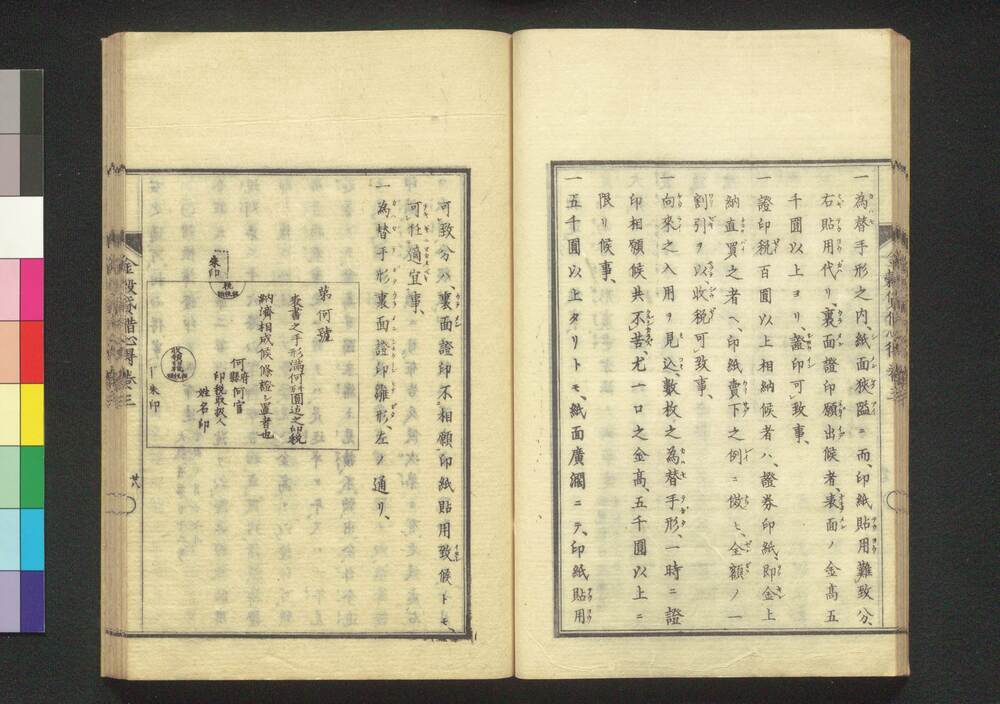 一為替手形之内、紙面狭隘ニ而、印紙貼用難致分、
右貼用代リ、裏面證印願出候者、表面ノ金高五
千圓以上ヨリ、證印可致事、
一證印税百圓以上相納候者ハ、證券印紙、即金上
納直買之者ヘ、印紙賣下之例ニ倣ヒ、全額ノ一
割引ヲ以、收税可致事、
一向來之入用ヲ見込、數枚之為替手形、一時ニ證
印相願候共不苦、尤一口之金高、五千圓以上ニ
限リ候事、
一五千圓以上タリトモ、紙面廣濶ニテ、印紙貼用
可致分ハ、裏面證印不相願、印紙貼用致候トモ、
可任適宜事、
一為替手形裏面證印雛形、左ノ通リ、
第何號
表書之手形満何圓迄之印税
納濟相成候條證シ置者也
何府縣何官
印税取扱人
姓名印
朱印
朱印
廿八